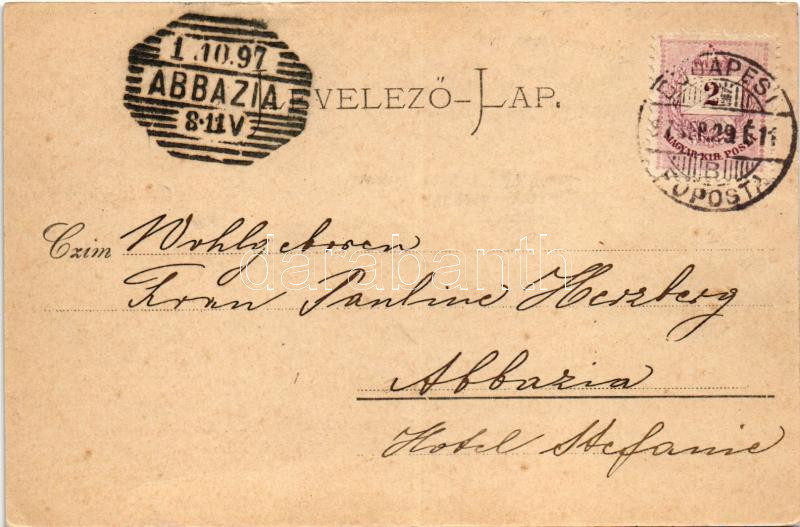 1.10.97
ABBAZIA
8·11V
LEVELEZŐ-LAP.
BUDAPEST
2
SEP. 29
É 11
MAGYAR KIR. POSTA
B
FŐPOSTA
Czim Wohlgeboren
Frau Pauline Herzberg
Abbazia
Hotel Stefanie
darabanth